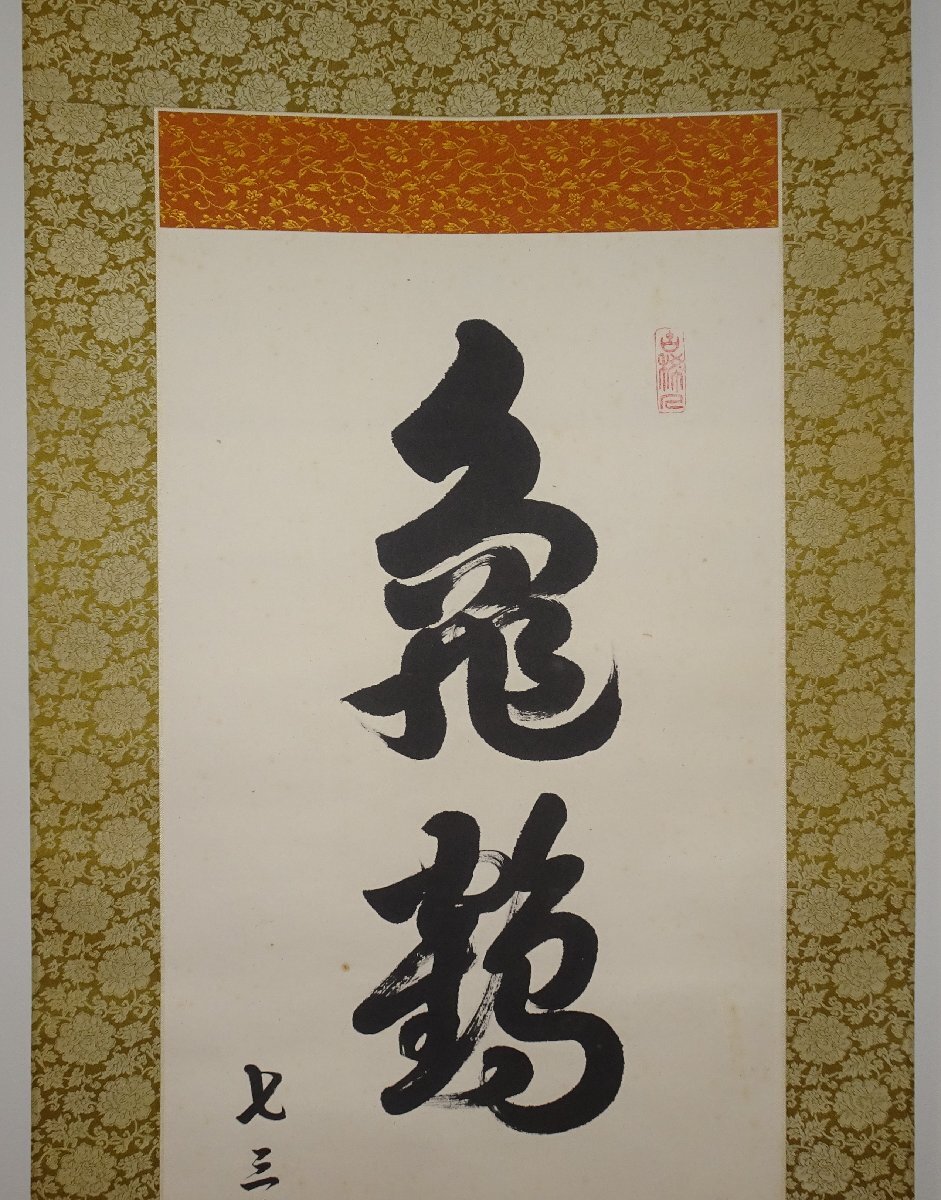 亀鶴
七三